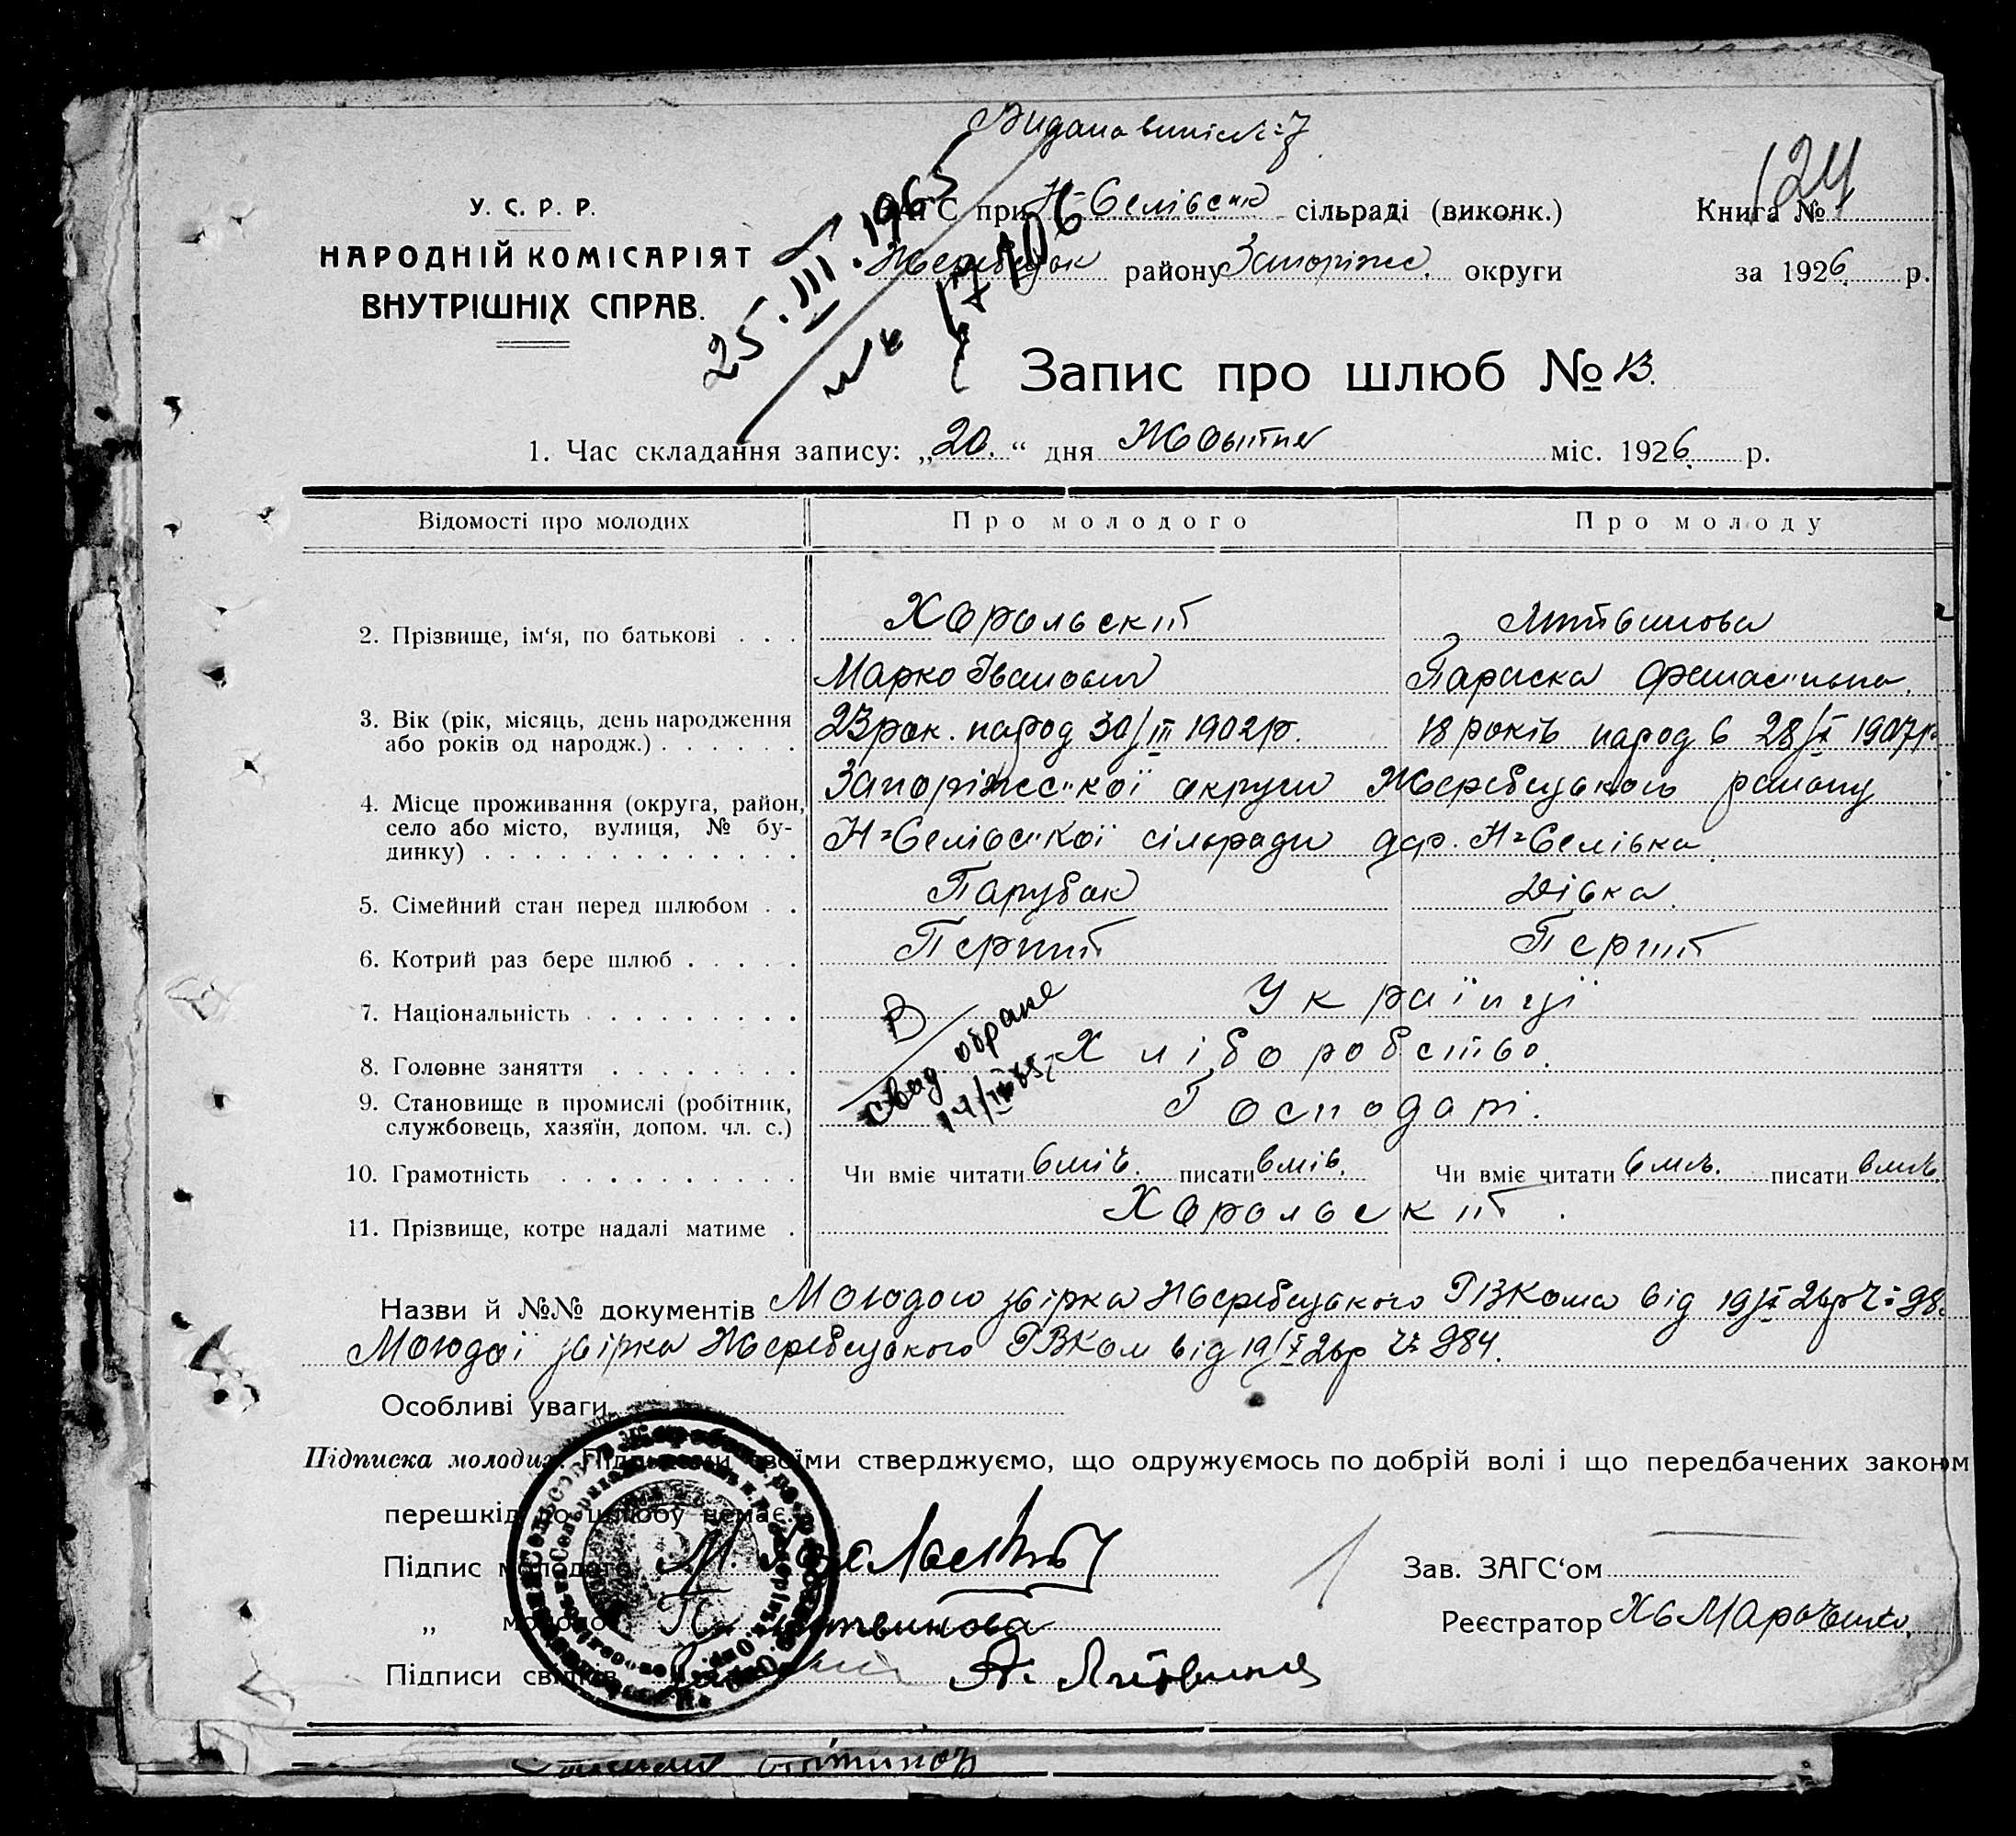 Видана виписк №7
124
У. С. Р. Р.
НАРОДНІЙ КОМІСАРІЯТ
ВНУТРІШНІХ СПРАВ.
ЗАГС при Н-Селівськ сільраді (виконк.)
Жеребецьк району Запоріжс. округи
Книга №
за 1926 р.
25.III.1965
Запис про шлюб № 13.
1. Час складання запису: „20.“ дня Жовтня міс. 1926 р.
Відомості про молодих Про молодого Про молоду
2. Прізвище, ім‘я, по батькові . . . Харольский Литвинова
Марко Іванович Параска
3. Вік (рік, місяць, день народження або років од народж.) . . . . . . 23 рок. народ 30/III 1902 р. 18 років народ в 28/X 1907 р.
4. Місце проживання (округа, район, село або місто, вулиця, № будинку) . . . . . . . . . . . . Запоріжс"кої округи Жеребецького району
Н=Селівс"кої сільради дер. Н=Селівка
5. Сімейний стан перед шлюбом . . Парубок Дівка.
6. Котрий раз бере шлюб . . . . . Перший Перший
7. Національність . . . . . . . . . Українці
8. Головне заняття . . . . . . . . Хліборобство.
9. Становище в промислі (робітник, службовець, хазяїн, допом. чл. с.) Господарі.
В
свад. обране
10. Грамотність . . . . . . . . . . Чи вміє читати вміє. писати вміє. Чи вміє читати вміє. писати вміє.
11. Прізвище, котре надалі матиме . Харольский
Назви й №№ документів Молодого звірка Жеребецького РВКома від 19/X 26р Ч: 98
Молодої звірка Жеребецького РВКом від 19/X 26р Ч: 984.
Особливі уваги
Підписка молодих. Підписами своїми стверджуємо, що одружуємось по добрій волі і що передбачених законом
перешкід до шлюбу немає.
Підпис молодого М.
„ молодої П. Литвинова
Підписи свідків А. Литвинов
Зав. ЗАГС‘ом
Реєстратор